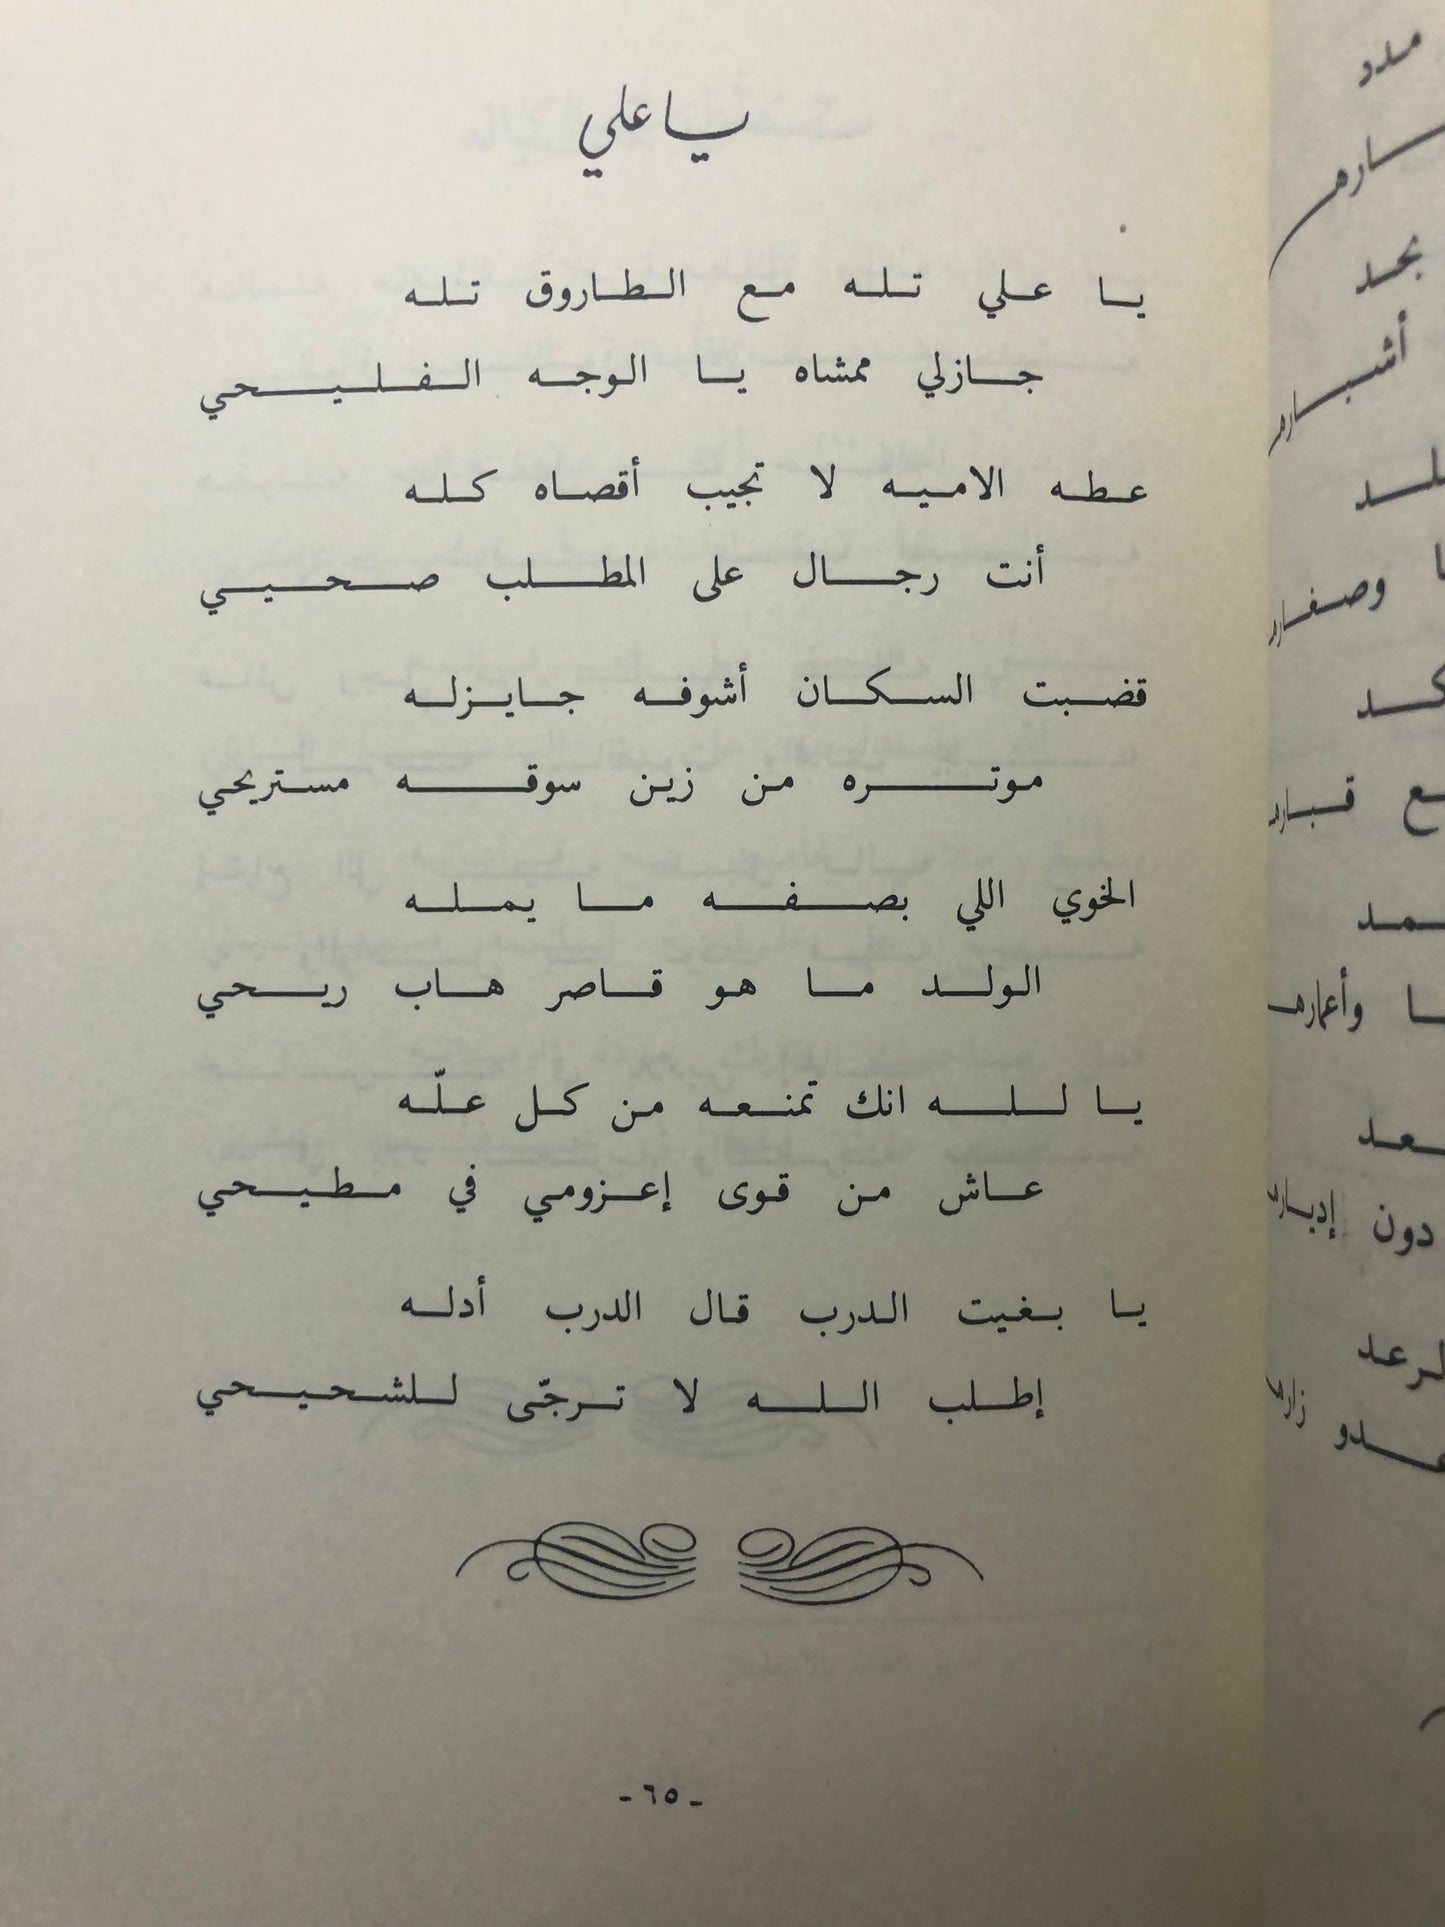 يا علي
يا علي تله مع الطاروق تله
جازلي ممشاه يا الوجه الفليحي
عطه الاميه لا تجيب أقصاه كله
أنت رجال على المطلب صحيي
قضبت السكان أشوفه جايزله
موتره من زين سوقه مستريحي
الخوي اللي بصفه ما يمله
الولد ما هو قاصر هاب ريحي
يا لله انك تمنعه من كل علّه
عاش من قوى إعزومي في مطيحي
يا بغيت الدرب قال الدرب أدله
إطلب الله لا ترجّى للشحيحي
- ٦٥ -
مدد
بحد
أشباره
وصفاره
كد
ع قباره
مد
ا وأعماره
عد
دون إدباره
لرعد
عدو زاره